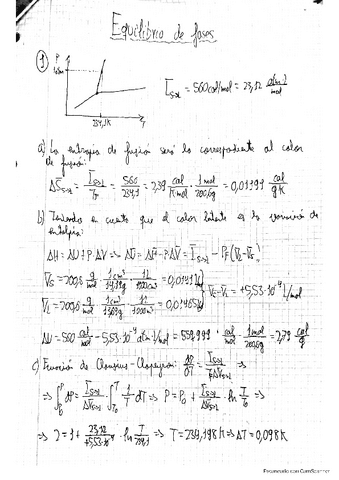 Equilibrio de fases
1
P
1 atm
234,1K
T
I s→l = 560 cal/mol = 23,12 atm·l/mol
a) La entropia de fusión será la correspondiente al calor
de fusión:
ΔS s→l = I s→l / Tf = 560/234,1 = 2,39 cal/K·mol · 1 mol/200,6g = 0,01199 cal/gK
b) Teniendo en cuenta que el calor latente es la variación de
entalpía:
ΔH = ΔU + P·ΔV => ΔU = ΔH - P·ΔV = I s→l - Pf (Vl - Vs)
Vs = 200,6 g/mol · 1cm³/14,19g · 1l/1000cm³ = 0,0141 l/mol
Vl = 200,6 g/mol · 1cm³/ · 1l/1000cm³ = 0,01465
Vl - Vs = +5,53·10⁻⁴ l/mol
ΔU = 560 cal/mol - 5,53·10⁻⁴ atm·l/mol = 559,99 cal/mol · 1mol/200,6g = 2,79 cal/g
c) Ecuación de Clausius-Clapeyron: dP/dT = I s→l / T·ΔV s→l =>
=> ∫ P0 P dP = I s→l / ΔV s→l · ∫ T0 T 1/T dT => P = P0 + I s→l / ΔV s→l · ln T/T0 =>
=> 2 = 1 + 23,12 / +5,53·10⁻⁴ · ln T/234,1 => T = 234,198K => ΔT = 0,098K
Escaneado con CamScanner